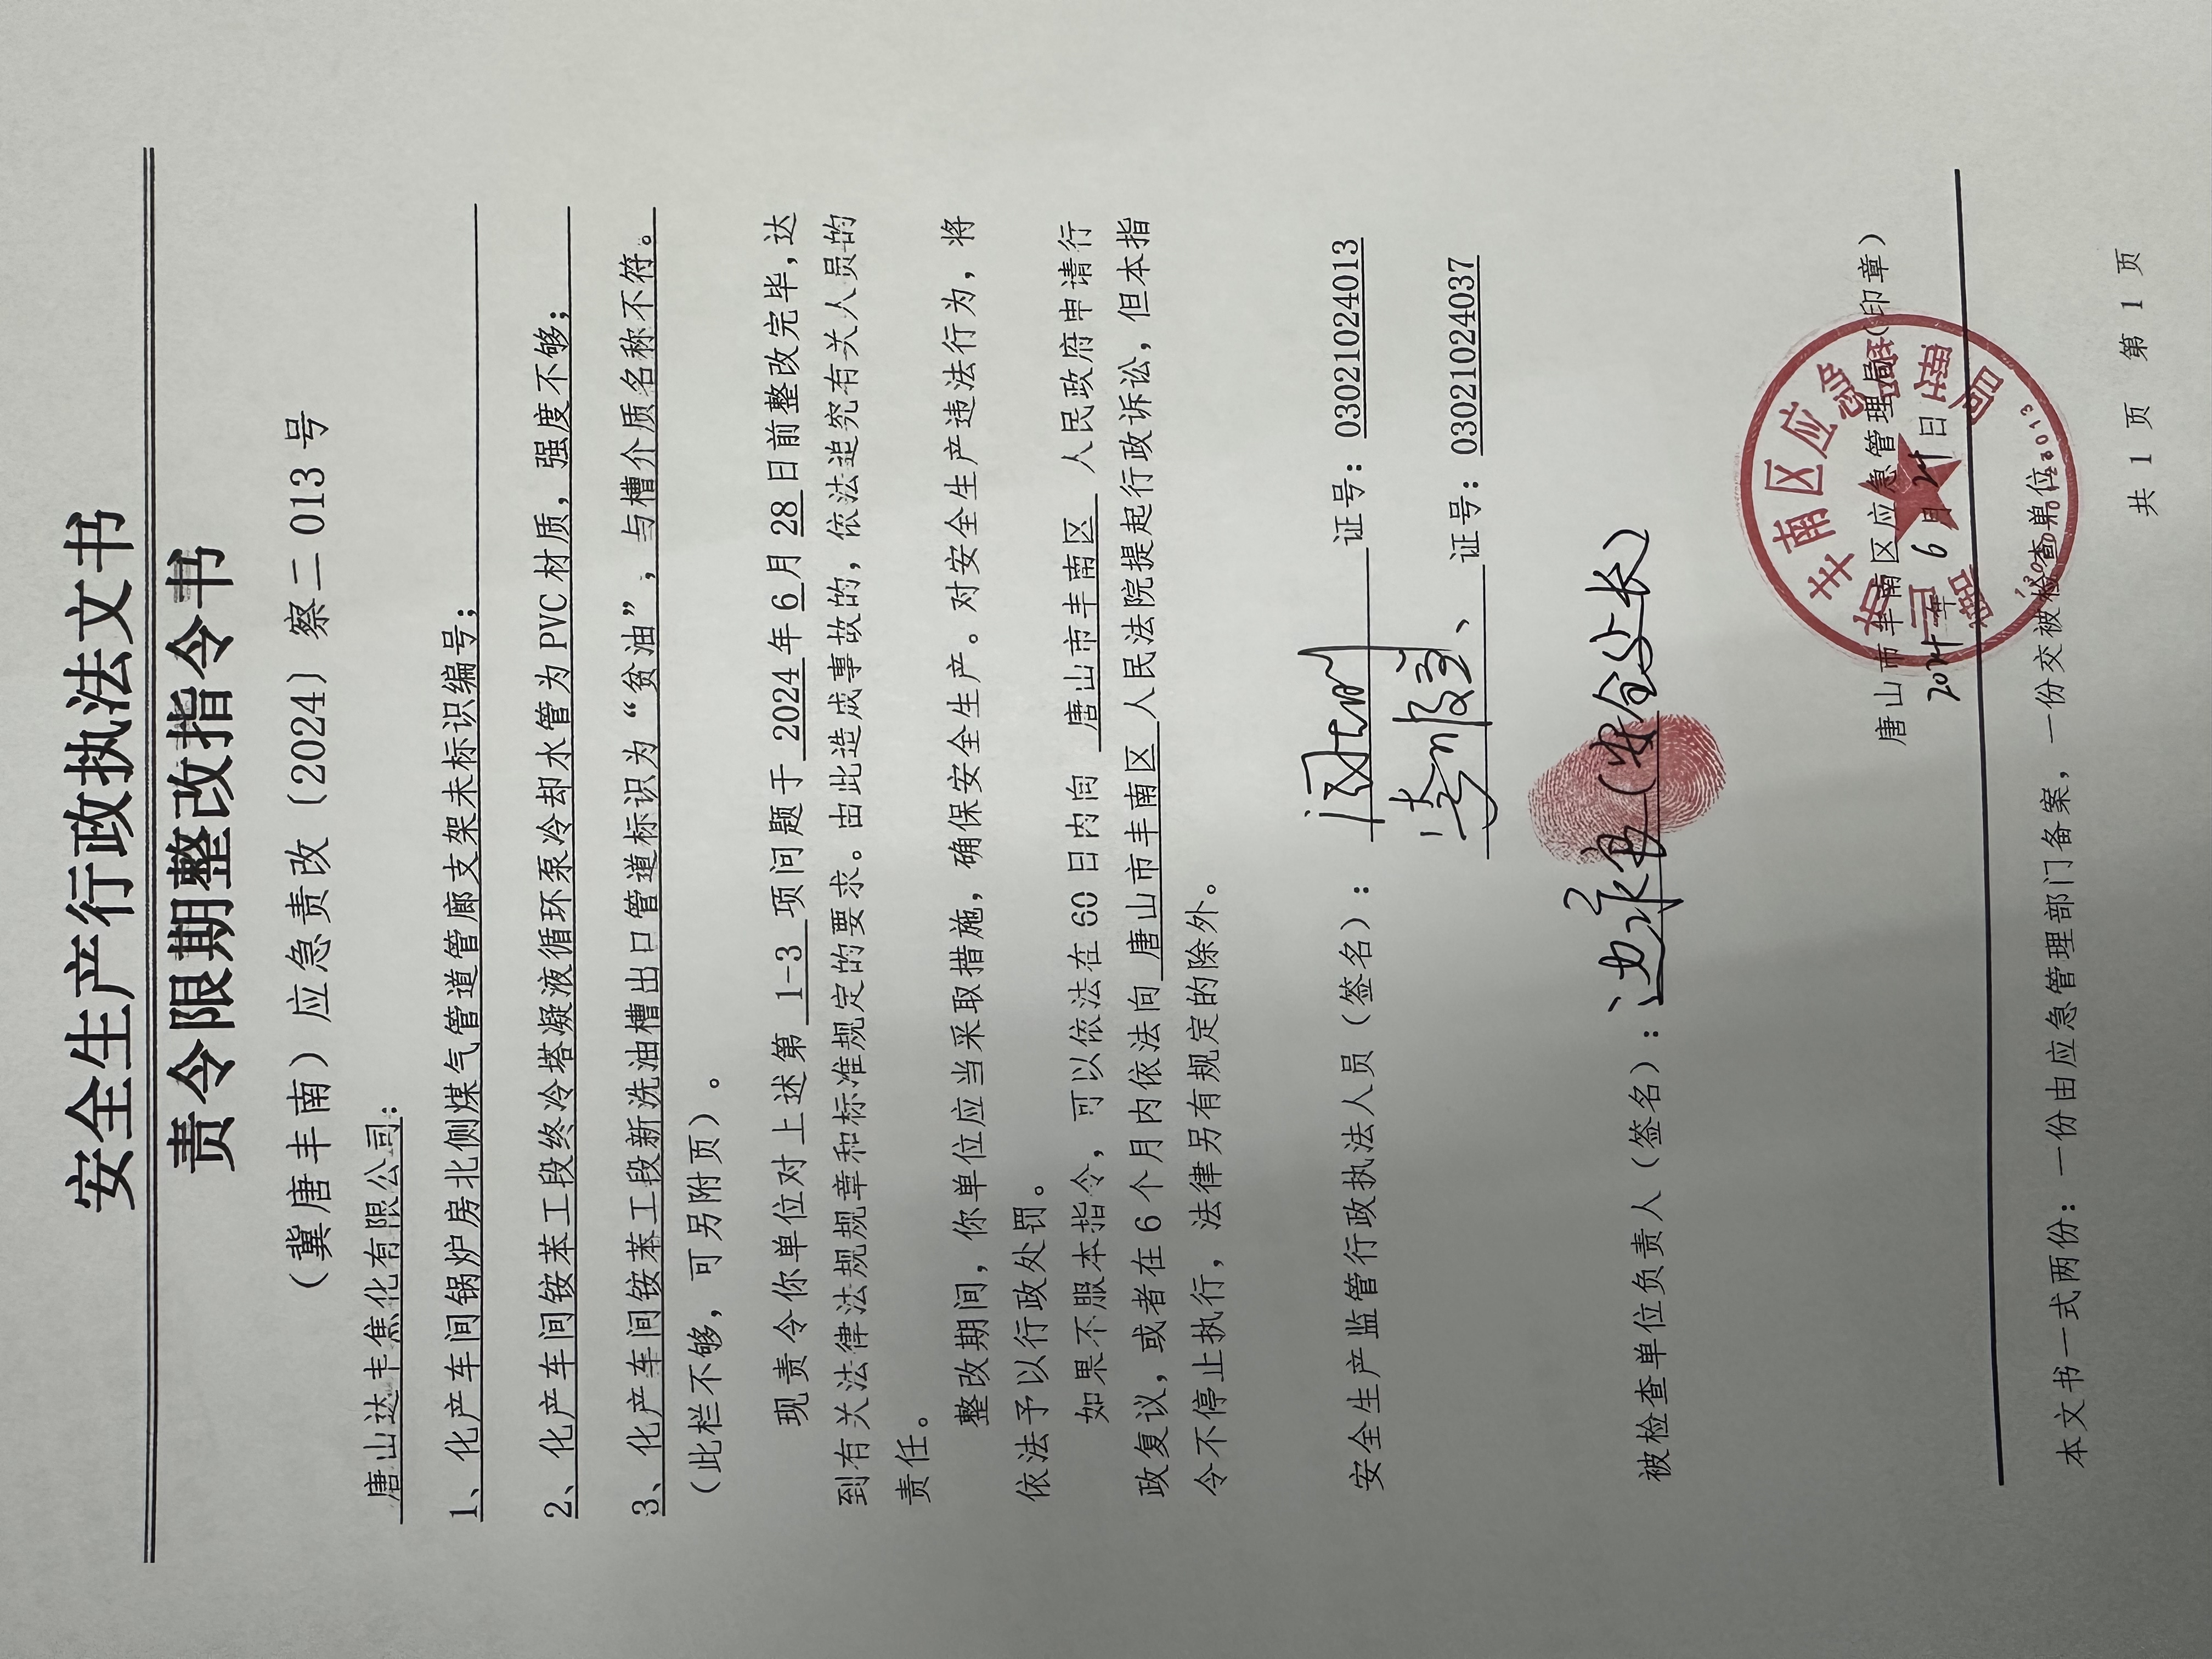 安全生产行政执法文书
责令限期整改指令书
（冀唐丰南）应急责改〔2024〕察二 013 号
唐山达丰焦化有限公司：
1、化产车间锅炉房北侧煤气管道管廊支架未标识编号；
2、化产车间铵苯工段终冷塔凝液循环泵冷却水管为 PVC 材质，强度不够；
3、化产车间铵苯工段新洗油槽出口管道标识为“贫油”，与槽介质名称不符。
（此栏不够，可另附页）。
现责令你单位对上述第 1-3 项问题于 2024 年 6 月 28 日前整改完毕，达
到有关法律法规规章和标准规定的要求。由此造成事故的，依法追究有关人员的
责任。
整改期间，你单位应当采取措施，确保安全生产。对安全生产违法行为，将
依法予以行政处罚。
如果不服本指令，可以依法在 60 日内向 唐山市丰南区 人民政府申请行
政复议，或者在 6 个月内依法向 唐山市丰南区 人民法院提起行政诉讼，但本指
令不停止执行，法律另有规定的除外。
安全生产监管行政执法人员（签名）： 证号：03021024013
证号：03021024037
被检查单位负责人（签名）： （安全处长）
唐山市丰南区应急管理局（印章）
2024 年 6 月 24 日
本文书一式两份：一份由应急管理部门备案，一份交被检查单位。
共 1 页 第 1 页